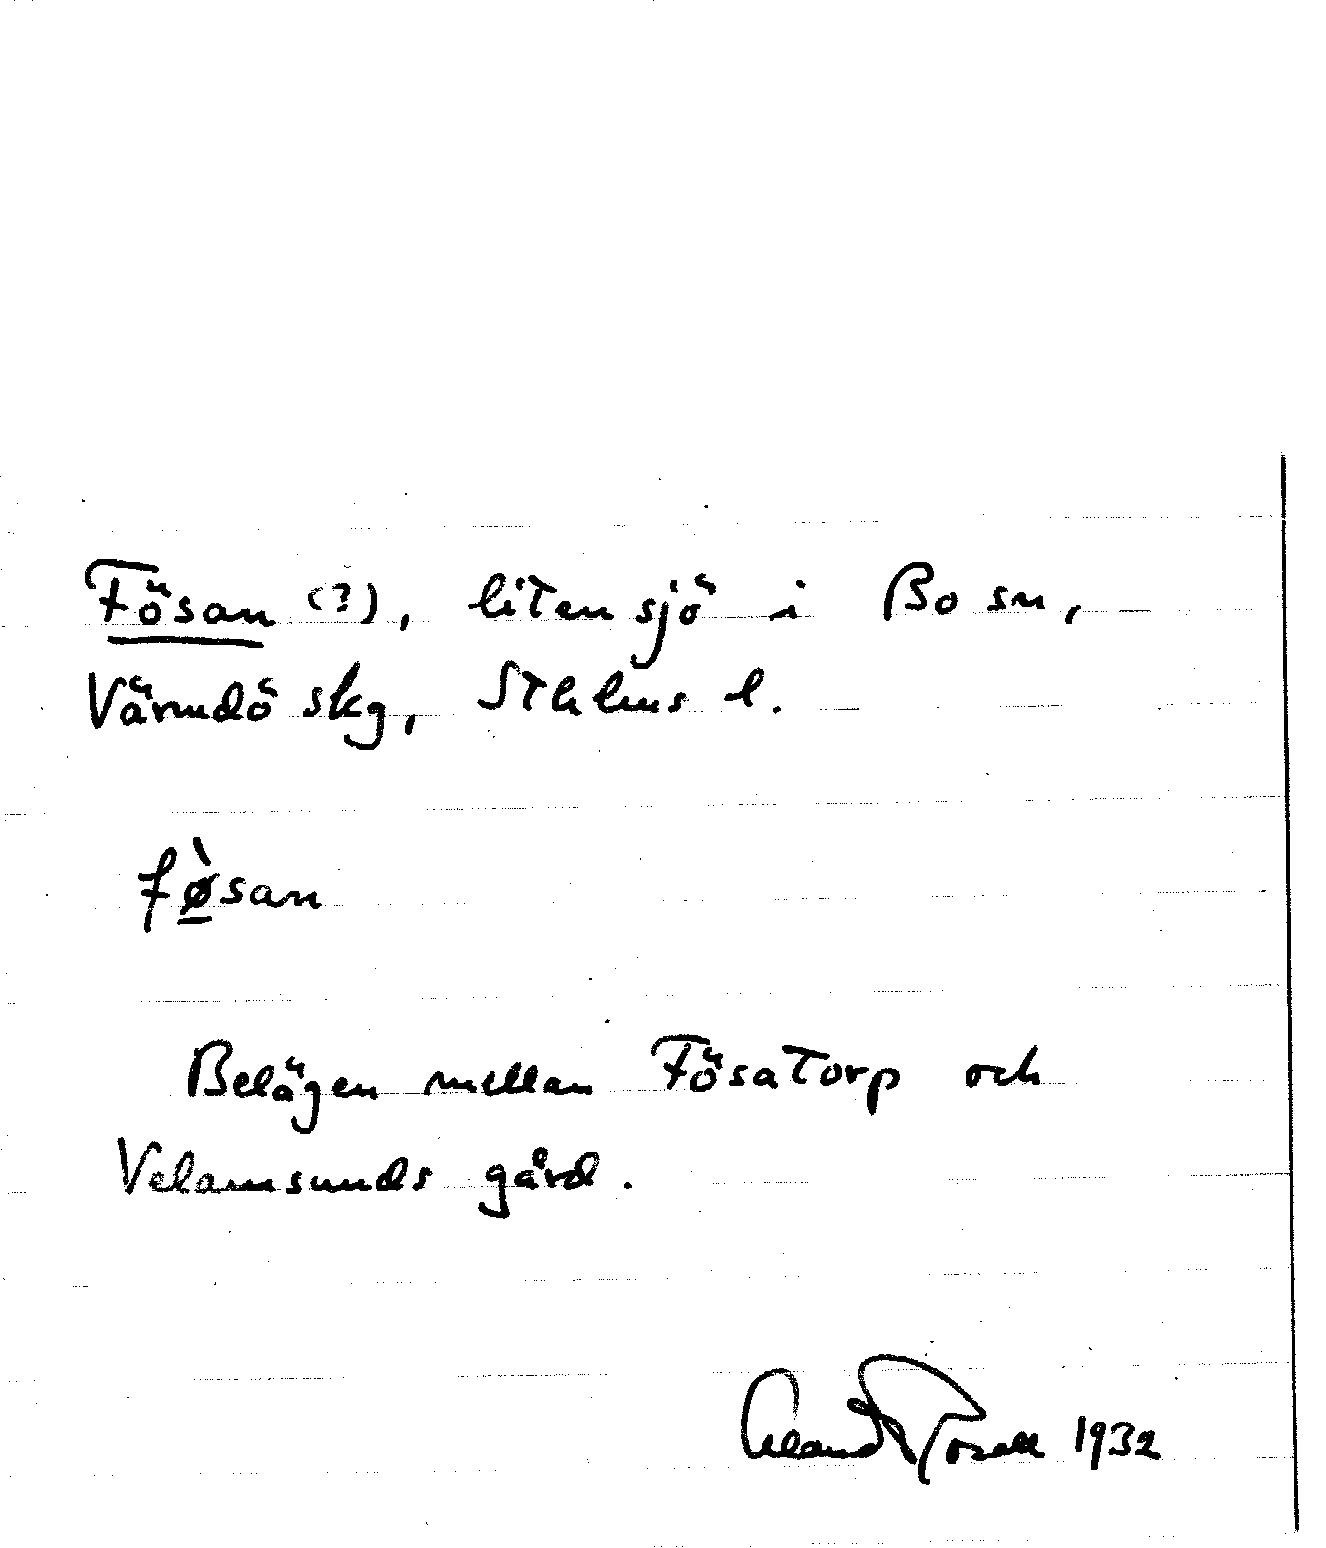 Fösan (?), liten sjö i Bo sn,
Värmdö skg, Sthlms l.
fø̀san
Belägen mellan Fösatorp och
Velamsunds gård.
1932